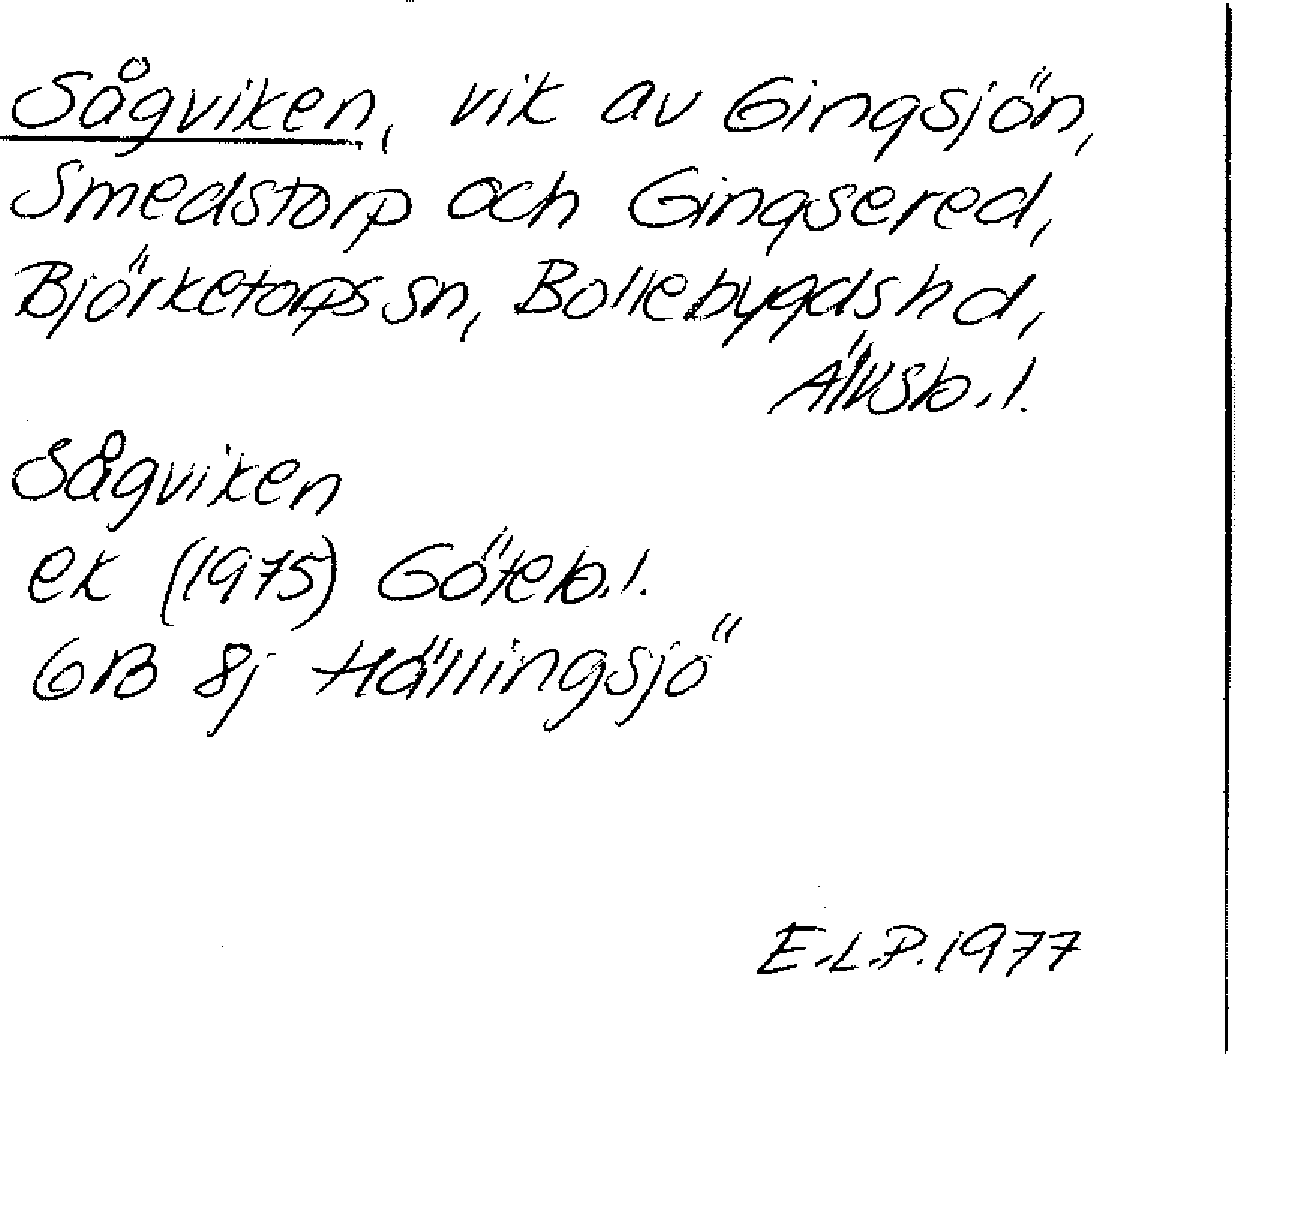 Sågviken, vik av Gingsjön,
Smedstorp och Gingsered,
Björketorps sn, Bollebygds hd,
Älvsb. l.
Sågviken
ek (1975) Göteb. l.
6B 8j Hällingsjö
E.L.P. 1977